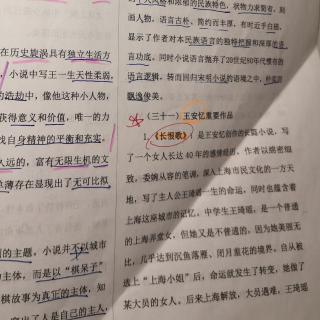 在历史旋涡具有独立生活方
小说中写王一生天性柔弱,
的浩劫中,像他这种小人物,
获得意义和价值,唯一的力
找自身精神的平衡和充实。
久远的,富有无限生机的文
单薄存在显现出了无可比拟
的主题。小说并不以城市
为主体,而是以“棋呆子”
棋故事为真正的主体,知
突出了人是自己的主人,
个人风格和浓郁的民族特色,状物力求简省,刻
画人物,语言古朴、简约而丰厚,有时近乎白描,
显示了作者对本民族语言的独特把握和深厚的语
言功底。同时小说语言抛弃了20世纪80年代惯有的
语言逻辑,转而回归宋明小说的语境之中,
飘逸俊美。
(三十一)王安忆重要作品
1.《长恨歌》:是王安忆创作的长篇小说,写
了一个女人长达40年的感情经历。作者以细密细
致、委婉从容的笔调,深入上海市民文化的一方天
地,写了主人公王琦瑶一生的命运,同时也蕴含着
上海这座城市的记忆。中学生王琦瑶,是一个普通
的上海弄堂女,但她又是不普通的,因为她美丽无
比,几乎达到沉鱼落雁、闭月羞花的境界。自从被
选上“上海小姐”后,命运就发生了转变,她做了
某大员的女人。后来上海解放,大员遇难,王琦瑶